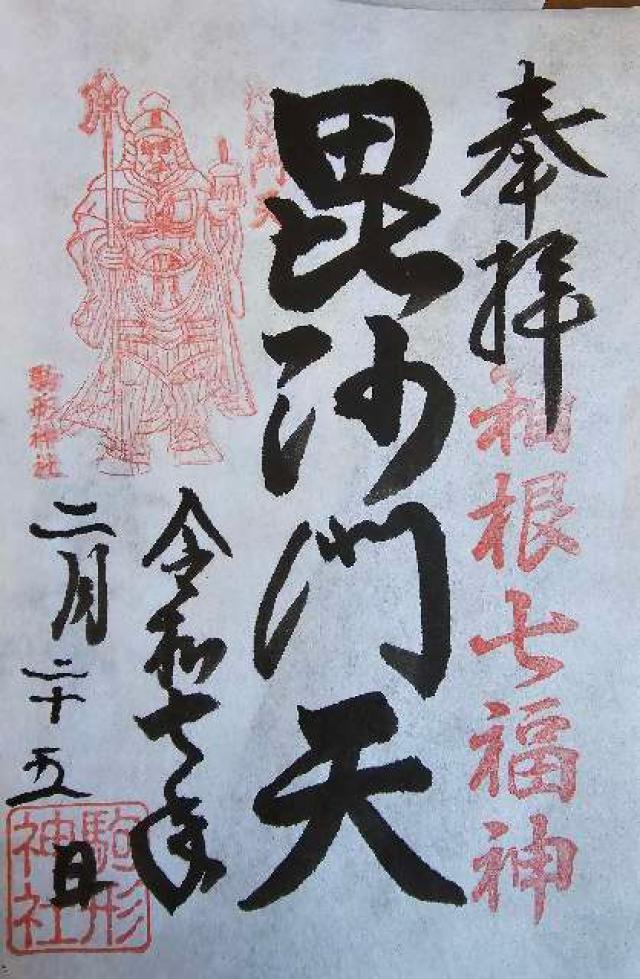 奉拝
箱根七福神
毘沙門天
毘沙門天
令和七年
二月二十五日
駒形神社
駒形神社